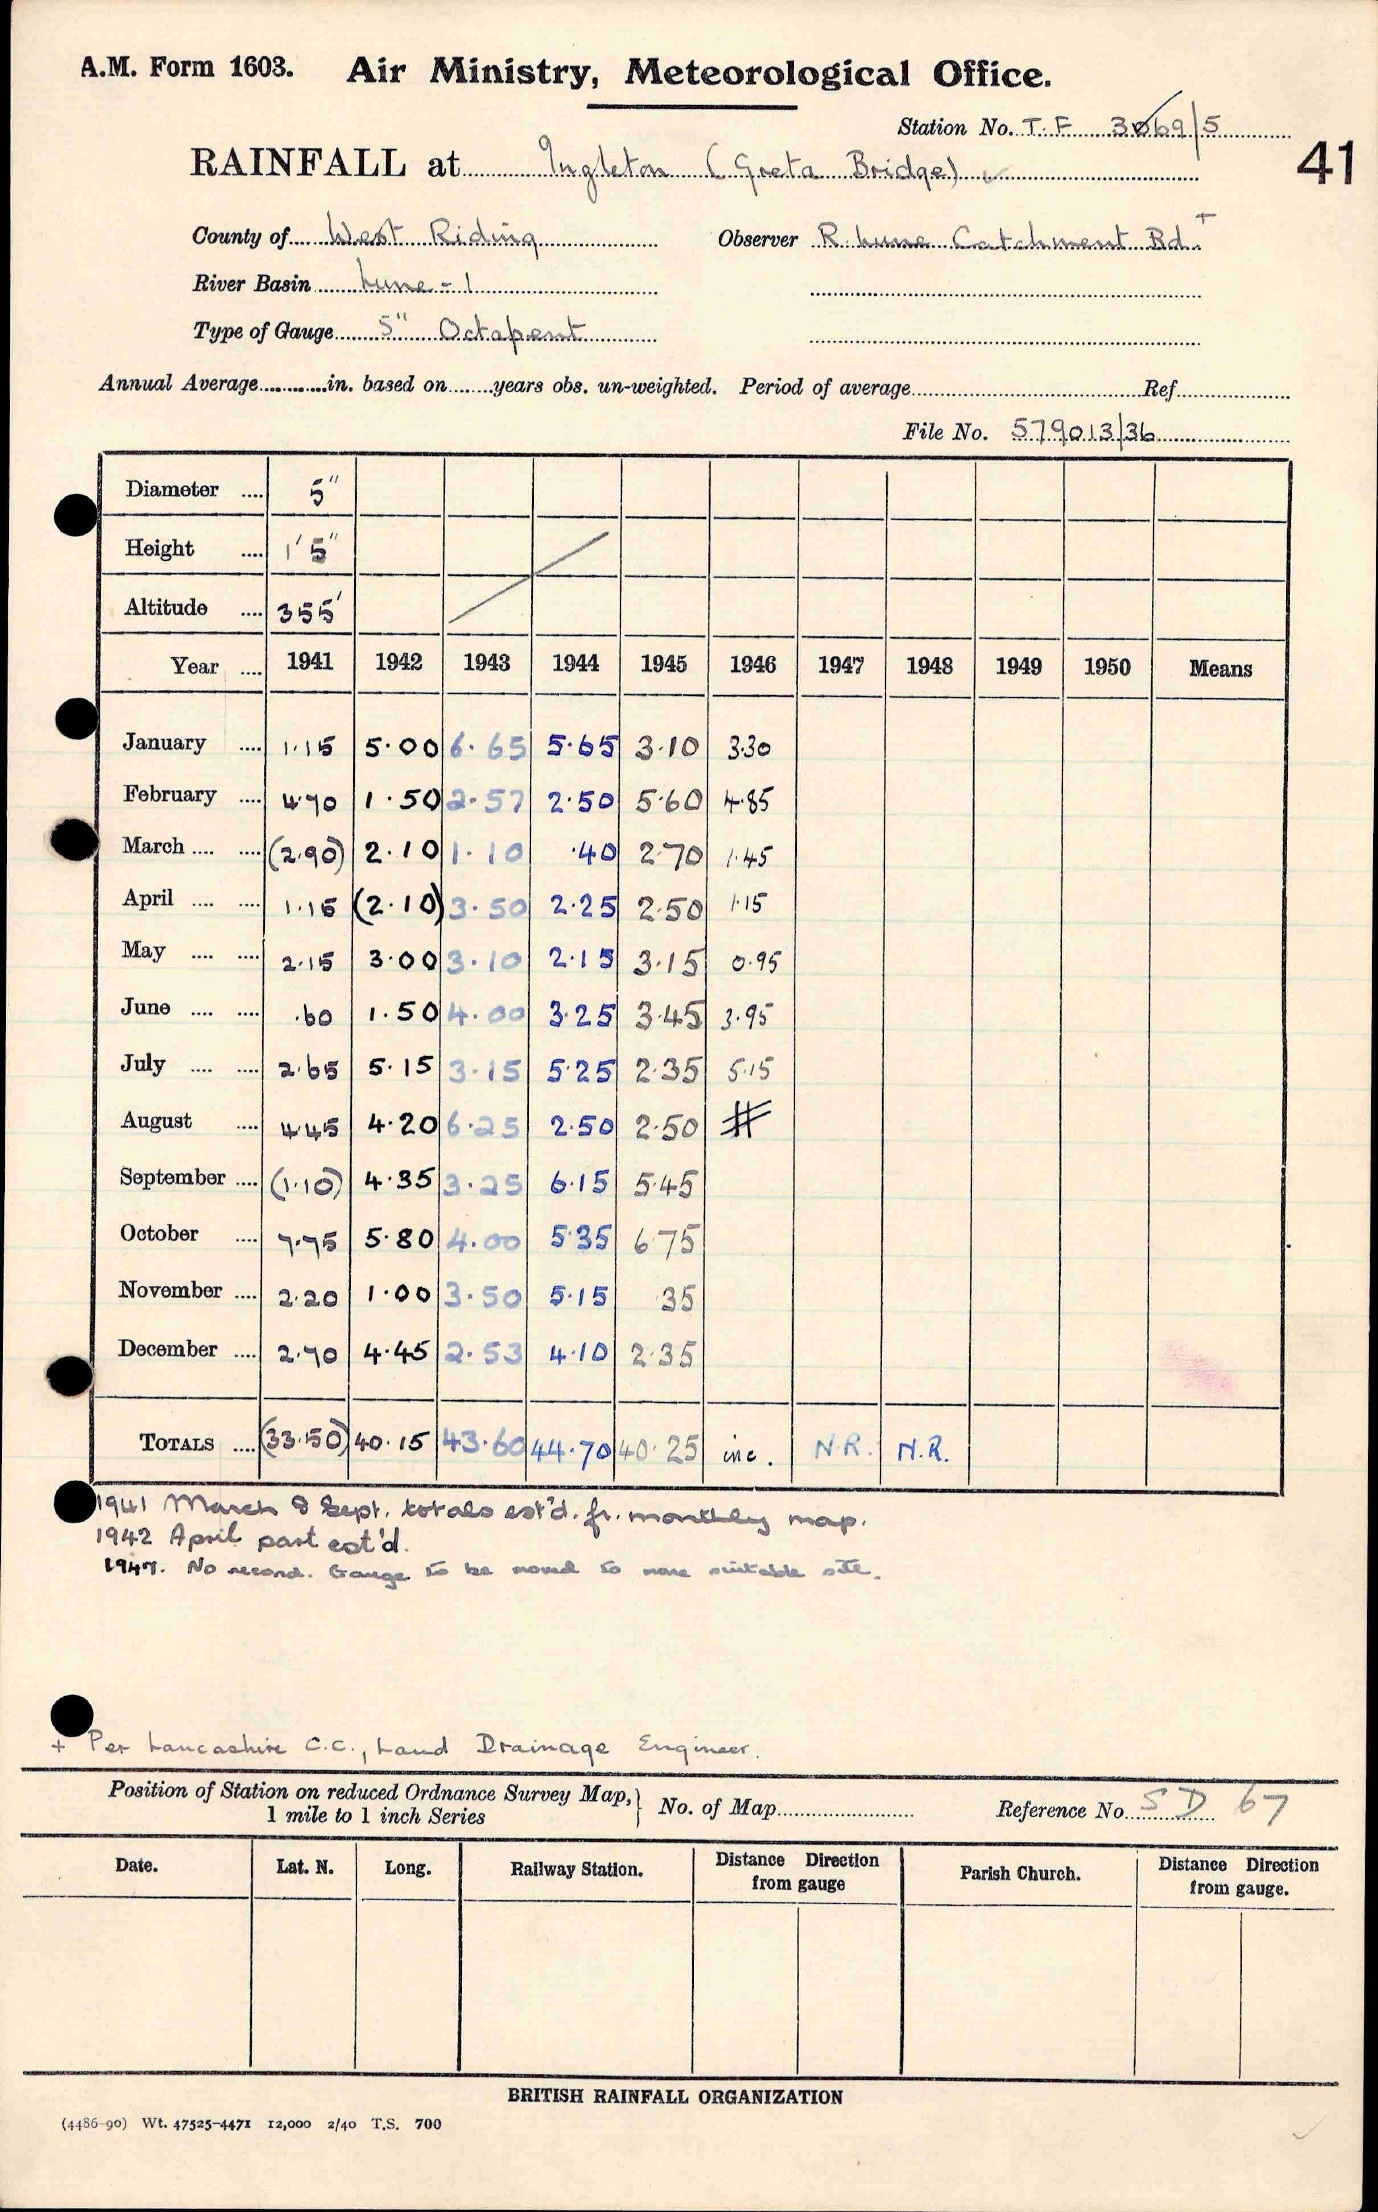 A.M. Form 1603. Air Ministry, Meteorological Office.
Station No. T.F 3069/5
41
RAINFALL at Ingleton (Greta Bridge) ✓
County of West Riding Observer R. Lune Catchment Bd. +
River Basin Lune - 1
Type of Gauge 5" Octapent
Annual Average............in. based on.......years obs. un-weighted. Period of average............Ref............
File No. 579013/36
Diameter .... 5"
Height .... 1' 5"
Altitude .... 355'
Year .... 1941 1942 1943 1944 1945 1946 1947 1948 1949 1950 Means
January .... 1.15 5.00 6.65 5.65 3.10 3.30
February .... 4.70 1.50 2.57 2.50 5.60 4.85
March .... .... (2.90) 2.10 1.10 .40 2.70 1.45
April .... .... 1.15 (2.10) 3.50 2.25 2.50 1.15
May .... .... 2.15 3.00 3.10 2.15 3.15 0.95
June .... .... .60 1.50 4.00 3.25 3.45 3.95
July .... .... 2.65 5.15 3.15 5.25 2.35 5.15
August .... 4.45 4.20 6.25 2.50 2.50 #
September .... (1.10) 4.35 3.25 6.15 5.45
October .... 7.75 5.80 4.00 5.35 6.75
November .... 2.20 1.00 3.50 5.15 .35
December .... 2.70 4.45 2.53 4.10 2.35
TOTALS .... (33.50) 40.15 43.60 44.70 40.25 inc. N.R. N.R.
1941 March & Sept. totals est'd. fr. monthly map.
1942 April part est'd.
1947. No record. Gauge to be moved to more suitable site.
+ Per Lancashire C.C., Land Drainage Engineer.
Position of Station on reduced Ordnance Survey Map, } No. of Map............ Reference No. SD 67
1 mile to 1 inch Series
Date. Lat. N. Long. Railway Station. Distance Direction from gauge Parish Church. Distance Direction from gauge.
BRITISH RAINFALL ORGANIZATION
(4486-90) Wt. 47525-4471 12,000 2/40 T.S. 700